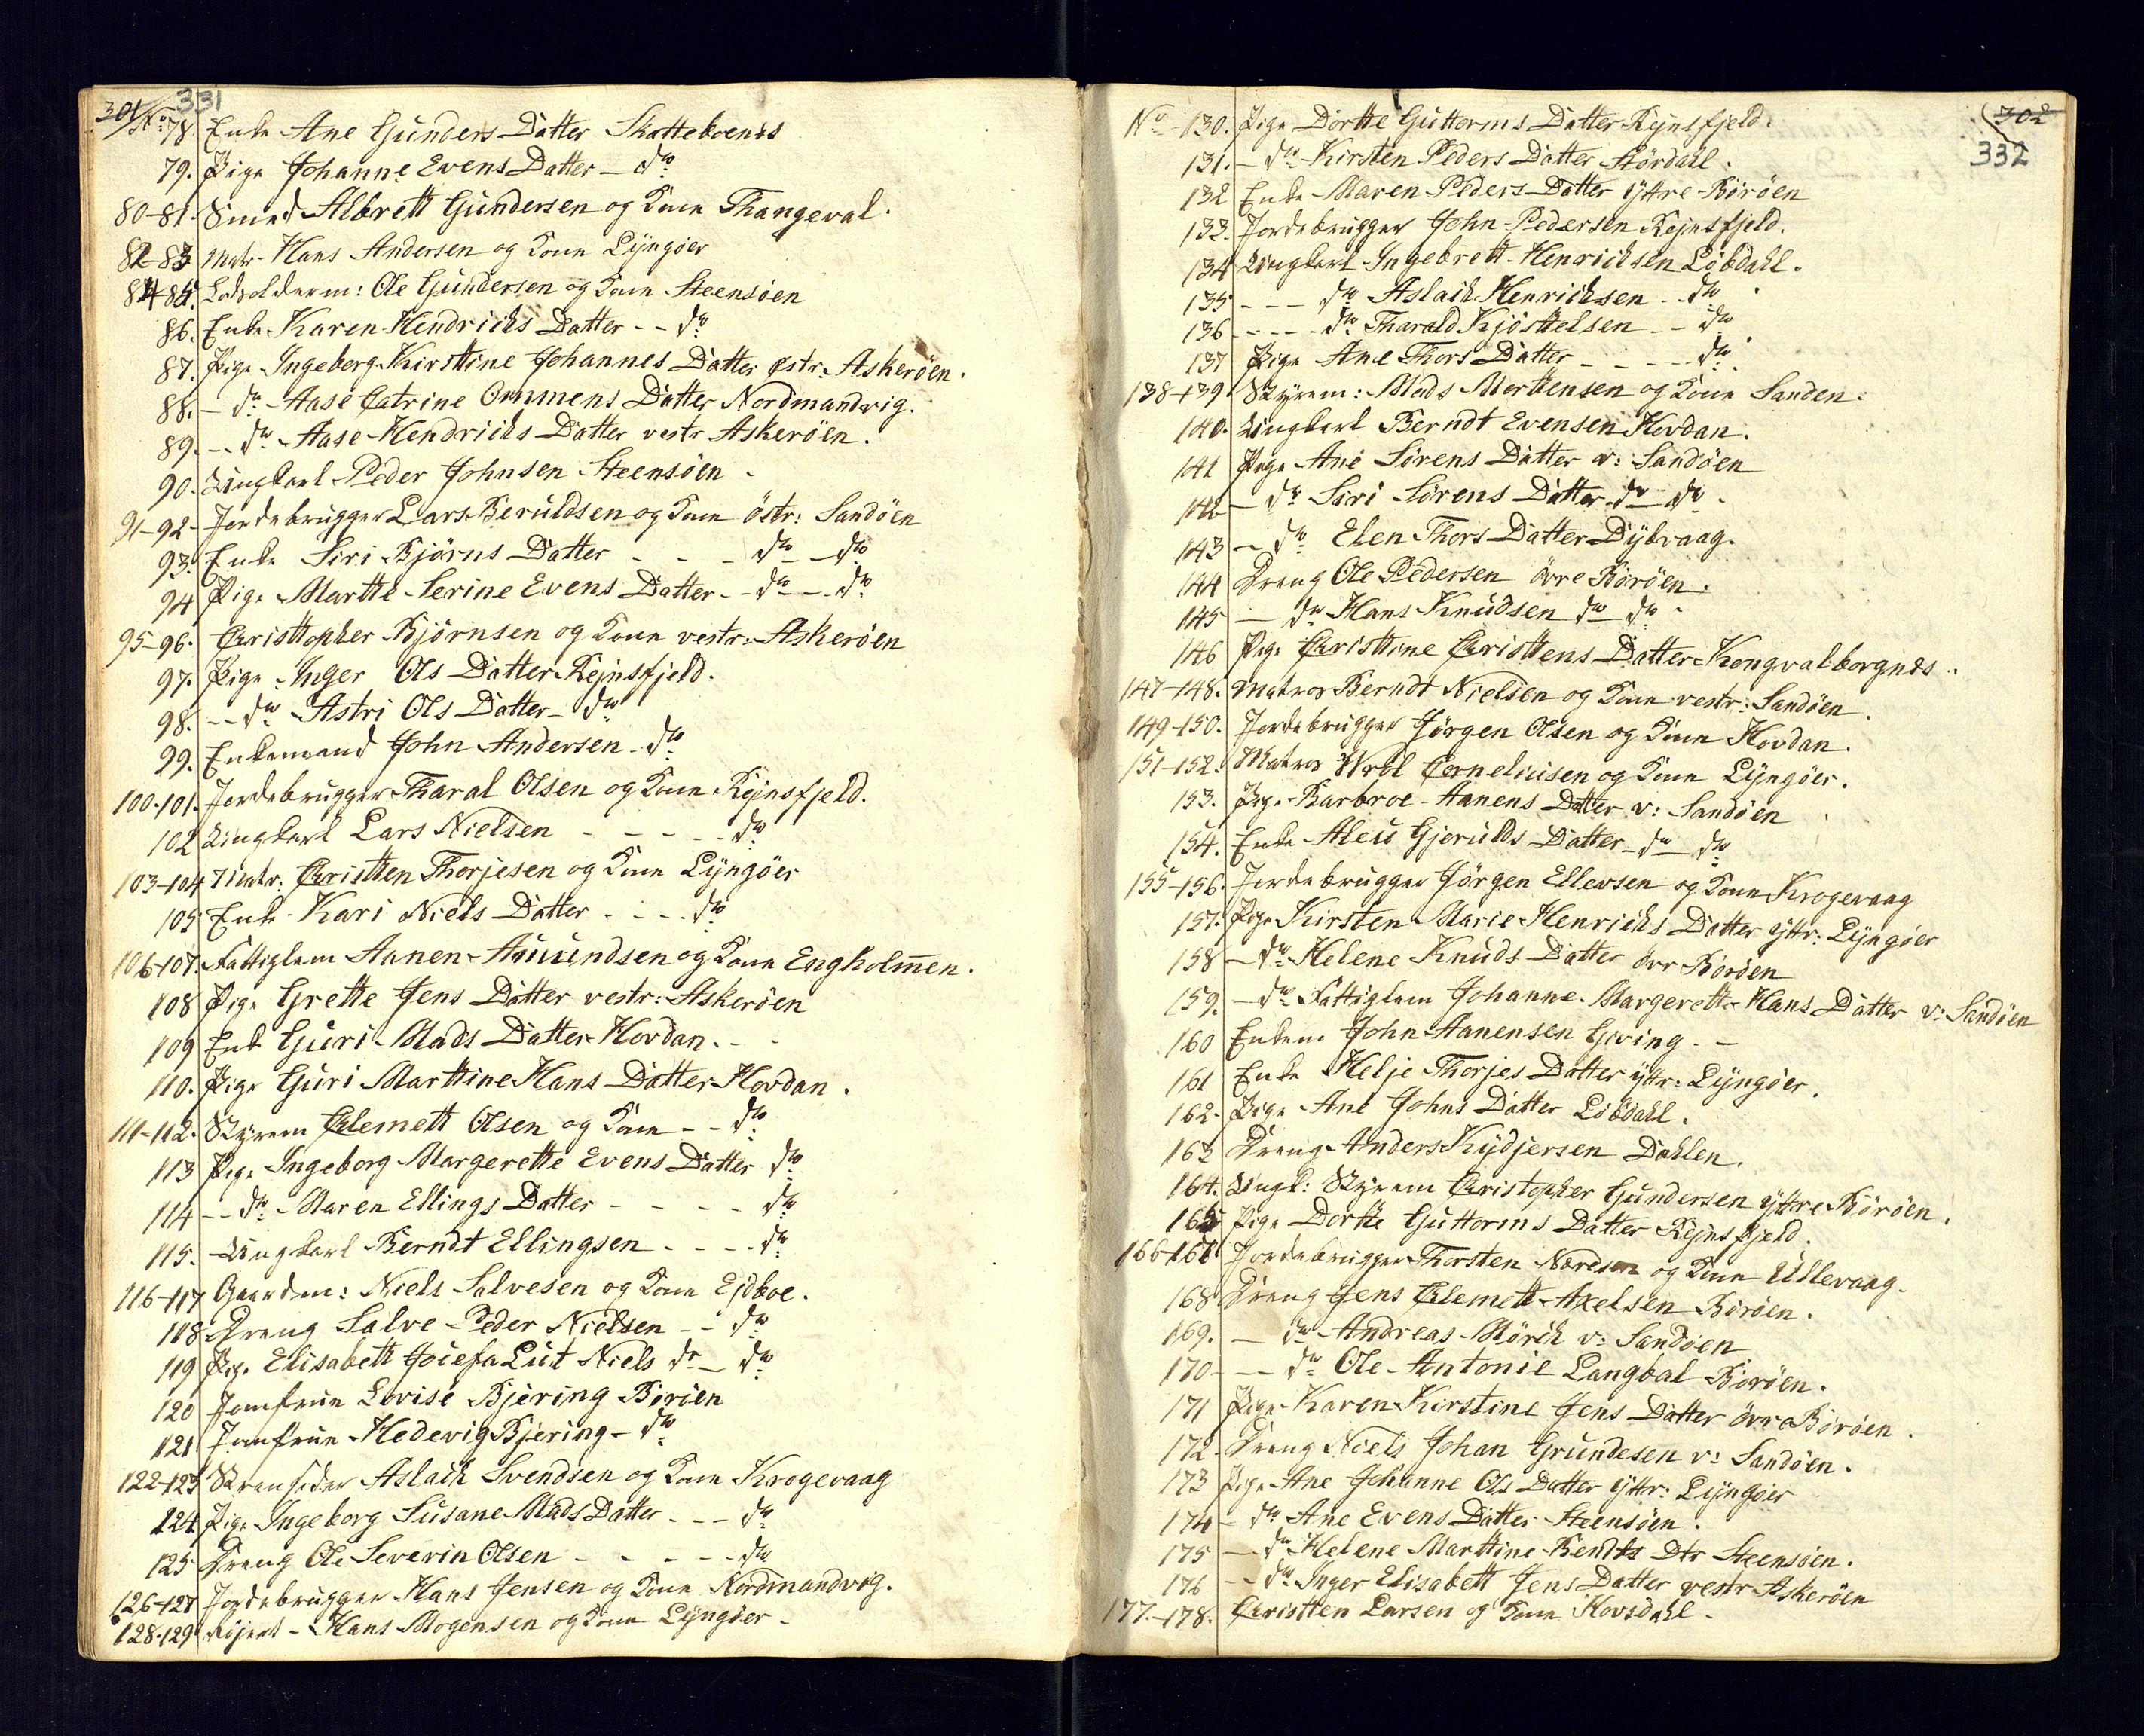 301 331
No: 78. Enke Ane Gunders Datter Skatteboenes
79. Pige Johanne Evens Datter - do
80-81. Smed Albrett Gundersen og Kone Thangeval.
82-83 Matr. Hans Andersen og Kone Lyngöer
84-85. Lodsolderm: Ole Gundersen og Kone Steensöen
86. Enke Karen Hendrichs Datter - - do
87. Pige Ingeborg Kirstine Johannes Datter østr: Askeröen.
88. - do - Aase Catrine Ommens Datter Nordmandvig.
89. - - do - Aase Hendrichs Datter vestr Askeröen.
90. Ungkarl Peder Johnsen Steensöen -
91-92- Jordebrugger Lars Beruldsen og Kone östr: Sandöen
93. Enke Siri Bjørns Datter - - - do - do
94 Pige Marthe Serine Evens Datter - - do - - do
95-96. Christtopher Bjørnsen og Kone vestr: Askeröen
97. Pige Inger Ols Datter Rejnsfjeld.
98. - - do - Astri Ols Datter - do
99. Enkemand John Andersen - do
100-101. Jordebrugger Tharal Olsen og Kone Rejnsfjeld.
102 Ungkarl Lars Nielsen - - - - - do
103-104 Matr: Christten Thorjesen og Kone Lyngöer
105 Enke Kari Niels Datter - - - do
106-107. Fattiglem Aanen Amundsen og Kone Engholmen.
108 Pige Grette Jens Datter vestr: Askeröen
109 Enk Guri Mads Datter Hovdan. -
110. Pige Guri Marttine Hans Datter Hovdan.
111-112. Skyrem Clemett Olsen og Kone - - do
113 Pige Ingeborg Margerette Evens Datter do
114 - - do - Maren Ellings Datter - - - - do
115. Ungkarl Berndt Ellingsen - - - - do
116-117 Gaardm: Niels Salvesen og Kone Ejdboe.
118 Dreng Salve Peder Nielsen - - do
119 Pige Elisabett Josefa Lut Niels dr - do
120 Jomfrue Lovise Bjering Boröen
121 Jomfrue Hedevig Bjering - do
122-123 Stransidder Aslach Svendsen og Kone Krogevaag
124 Pige Ingeborg Susane Mads Datter - - - do
125 Dreng Ole Severin Olsen - - - - - do
126-127 Jordebrugger Hans Jensen og Kone Nordmandvig.
128-129 Hans Mogensen og Kone Lyngöer -
302
332
No 130. Pige Dorthe Guttorms Datter Rejnsfjeld.
131. - do Kirsten Peders Datter Stördahl.
132 Enke Maren Peders Datter Yttre Böröen
133. Jordebrugger John Pedersen Rejnsfjeld.
134 Ungkarl Ingebrett Henrichsen Löbdahl.
135 - - - do Aslach Henrichsen - - do
136 - - - - do Tharald Kjösttelsen - - do
137 Pige Ane Thors Datter - - - - do
138-139 Skyrem: Mads Morttensen og Kone Sanden.
140. Ungkarl Berndt Evensen Hovdan.
141 Pige Ane Sörens Datter v: Sandöen
142 - do Siri Sörens Datter do do -
143 - do Elen Thors Datter Dybvaag.
144 Dreng Ole Pedersen övre Böröen.
145 - do Hans Knudsen do do -
146 Pige Christtine Christtens Datter Kongvalborgnes..
147-148. Matros Berndt Nielsen og Kone vestr: Sandöen.
149-150. Jordebrugger Jörgen Olsen og Kone Hovdan.
151-152. Matros Wrol Corneliusen og Kone Lyngöer.
153. Pige Barbroe Aanens Datter v: Sandöen.
154. Enke Aleu Gjerulds Datter - do do
155-156. Jordebrugger Jörgen Ellevsen og Kone Krogevaag
157. Pige Kirsten Marie Henrichs Datter yttr: Lyngöer
158 - do Helene Knuds Datter övr Boröen
159. - do Fattiglem Johanne Margerett Hans Datter v: Sandöen
160 Enkem John Aanensen Gving. -
161 Enke Helje Thorjes Datter yttr: Lyngöer.
162. Pige Ane Johns Datter Löbdahl.
163 Dreng Anders Kydjersen Dahlen.
164. Ungk: Skyrem Christopher Gundersen yttre Böröen.
165 Pige Dorthe Guttorms Datter Rejnsfjeld.
166-167 Jordebrugger Thorsten Næresen og Kone Ullevaag.
168 Dreng Jens Clemett Axelsen Böröen.
169. - do Andreas Mörch v: Sandöen
170 - - do Ole Antonie Langbal Böröen.
171 Pige Karen Kirstine Jens Datter övre Böröen.
172. Dreng Niels Johan Grundesen v: Sandöen.
173 Pige Ane Johanne Ols Datter yttr: Lyngöer
174 - do Ane Evens Datter Steensöen.
175 - do Helene Marttine Bendts Dtr Steensöen.
176 - do Inger Elisabett Jens Datter vestr Askeröen
177-178. Christten Larsen og Kone Hovsdahl -